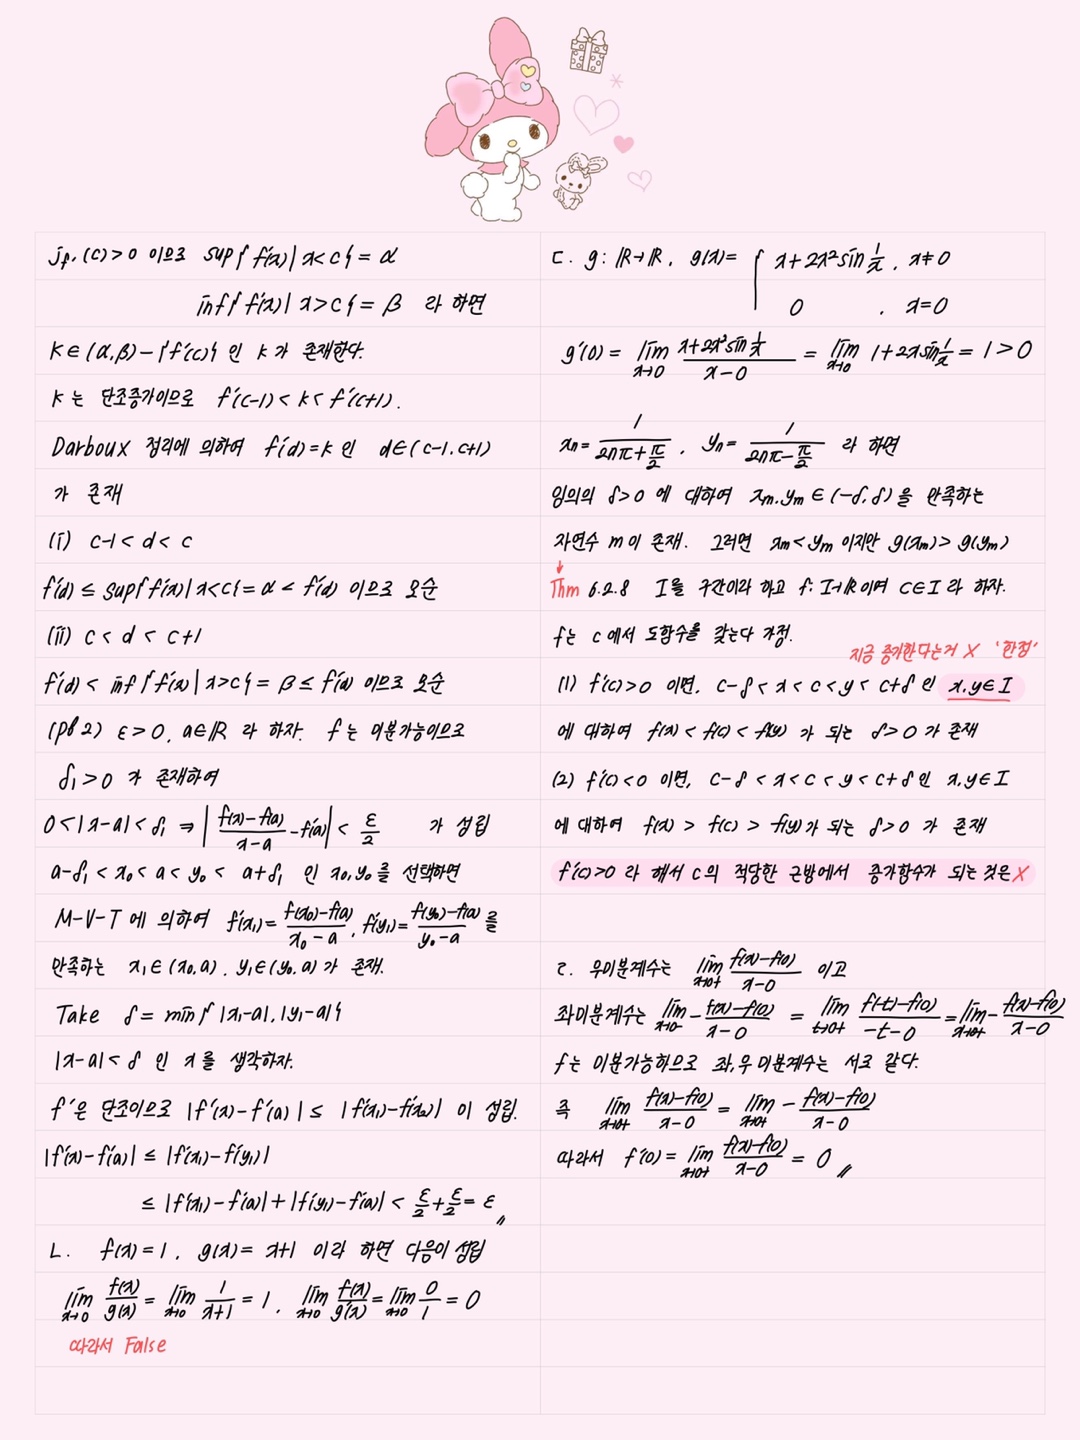 j_f'(c)>0 이므로 sup{f'(x)|x<c}=α
inf{f'(x)|x>c}=β 라 하면
K∈(α,β)-{f'(c)} 인 K가 존재한다.
K는 단조증가이므로 f'(c-1)<K<f'(c+1).
Darboux 정리에 의하여 f'(d)=K인 d∈(c-1.c+1)
가 존재
(i) c-1<d<c
f'(d)≤sup{f'(x)|x<c}=α<f'(d) 이므로 모순
(ii) c<d<c+1
f'(d)<inf{f'(x)|x>c}=β≤f'(d) 이므로 모순
(pf 2) ε>0, a∈ℝ 라 하자. f는 미분가능이므로
δ₁>0 가 존재하여
0<|x-a|<δ₁ ⇒ |(f(x)-f(a))/(x-a) - f'(a)| < ε/2 가 성립
a-δ₁<x₀<a<y₀<a+δ₁ 인 x₀,y₀를 선택하면
M-V-T에 의하여 f'(x₁)=(f(x₀)-f(a))/(x₀-a), f'(y₁)=(f(y₀)-f(a))/(y₀-a)를
만족하는 x₁∈(x₀,a), y₁∈(y₀,a)가 존재.
Take δ=min{|x₁-a|,|y₁-a|}
|x-a|<δ 인 x를 생각하자.
f'은 단조이므로 |f'(x)-f'(a)|≤ 이 성립.
|f'(x)-f'(a)|≤|f'(x₁)-f'(y₁)|
≤|f'(x₁)-f'(a)|+|f'(y₁)-f'(a)|<ε/2+ε/2=ε〃
ㄴ. f(x)=1, g(x)=x+1 이라 하면 다음이 성립
lim x→0 f(x)/g(x) = lim x→0 1/(x+1) = 1, lim x→0 f'(x)/g'(x) = lim x→0 0/1 = 0
따라서 False
ㄷ. g: ℝ→ℝ, g(x)= { x+2x²sin 1/x, x≠0
0, x=0
g'(0)= lim x→0 (x+2x²sin 1/x)/(x-0) = lim x→0 1+2x sin 1/x = 1>0
xₙ=1/(2nπ+π/2), yₙ=1/(2nπ-π/2) 라 하면
임의의 δ>0 에 대하여 xₘ.yₘ∈(-δ,δ)을 만족하는
자연수 m이 존재. 그러면 xₘ<yₘ 이지만 g(xₘ)>g(yₘ)
↓
Thm 6.2.8 I를 구간이라 하고 f: I→ℝ이며 c∈I라 하자.
f는 c에서 도함수를 갖는다 가정.
지금 증가한다는거 X '한점'
(1) f'(c)>0 이면, c-δ<x<c<y<c+δ인 x,y∈I
에 대하여 f(x)<f(c)<f(y) 가 되는 δ>0 가 존재
(2) f'(c)<0 이면, c-δ<x<c<y<c+δ인 x,y∈I
에 대하여 f(x)>f(c)>f(y)가 되는 δ>0 가 존재
f'(c)>0 라 해서 c의 적당한 근방에서 증가함수가 되는 것은 X
ㄹ. 우미분계수는 lim x→0+ (f(x)-f(0))/(x-0) 이고
좌미분계수는 lim x→0- -(f(x)-f(0))/(x-0) = lim t→0+ (f(-t)-f(0))/(-t-0) = lim x→0+ -(f(x)-f(0))/(x-0)
f는 미분가능하므로 좌,우 미분계수는 서로 같다.
즉 lim x→0+ (f(x)-f(0))/(x-0) = lim x→0+ -(f(x)-f(0))/(x-0)
따라서 f'(0)= lim x→0+ (f(x)-f(0))/(x-0) = 0〃